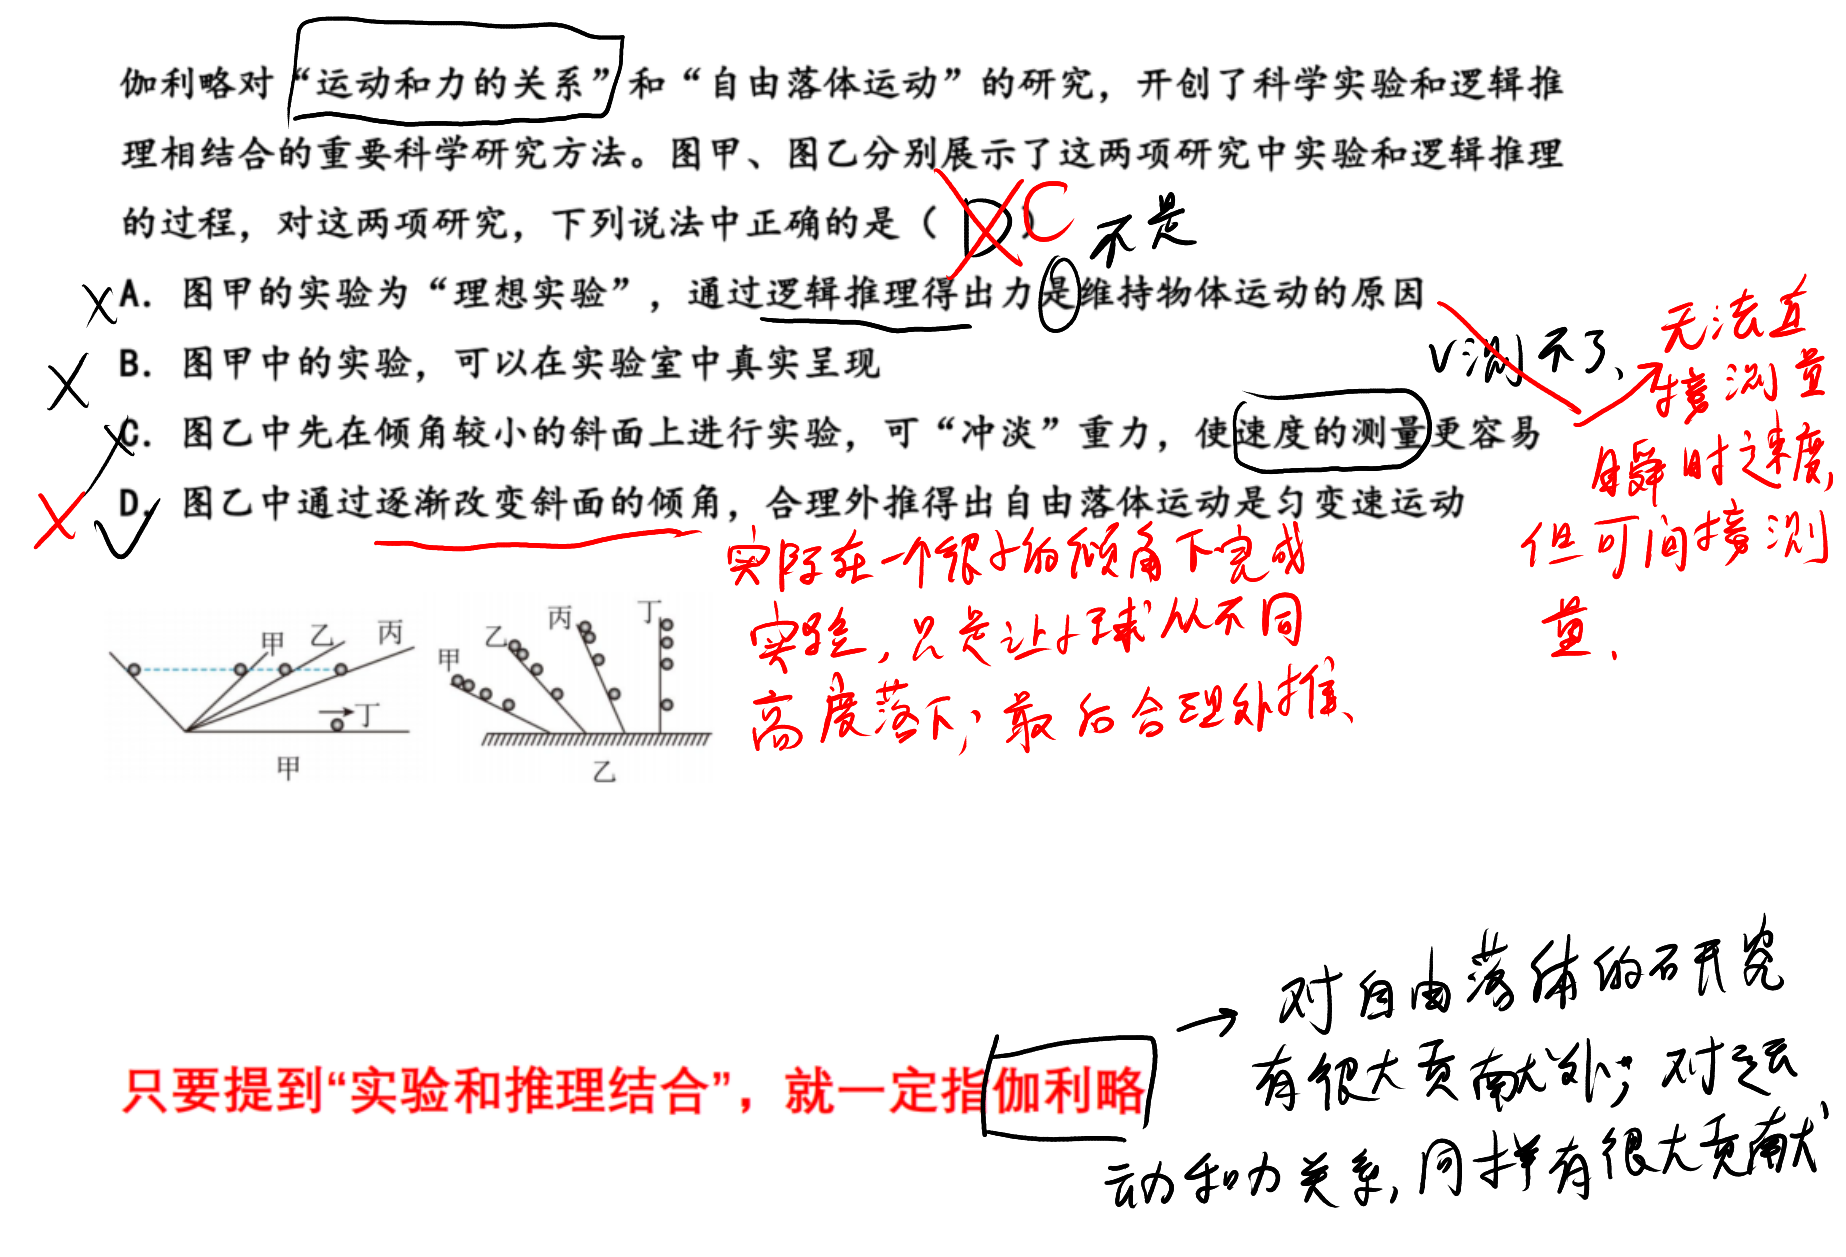 伽利略对“运动和力的关系”和“自由落体运动”的研究，开创了科学实验和逻辑推
理相结合的重要科学研究方法。图甲、图乙分别展示了这两项研究中实验和逻辑推理
的过程，对这两项研究，下列说法中正确的是（ D ）C
不是
A．图甲的实验为“理想实验”，通过逻辑推理得出力是维持物体运动的原因
B．图甲中的实验，可以在实验室中真实呈现
C．图乙中先在倾角较小的斜面上进行实验，可“冲淡”重力，使速度的测量更容易
D．图乙中通过逐渐改变斜面的倾角，合理外推得出自由落体运动是匀变速运动
V测不了、
无法直
接测量
瞬时速度，
但可间接测
量．
实际在一个很小的倾角下完成
实验，只是让小球从不同
高度落下；最后合理外推、
甲 乙 丙
丁
甲
甲 乙 丙 丁
乙
只要提到“实验和推理结合”，就一定指伽利略
→ 对自由落体的研究
有很大贡献外；对运
动和力关系，同样有很大贡献